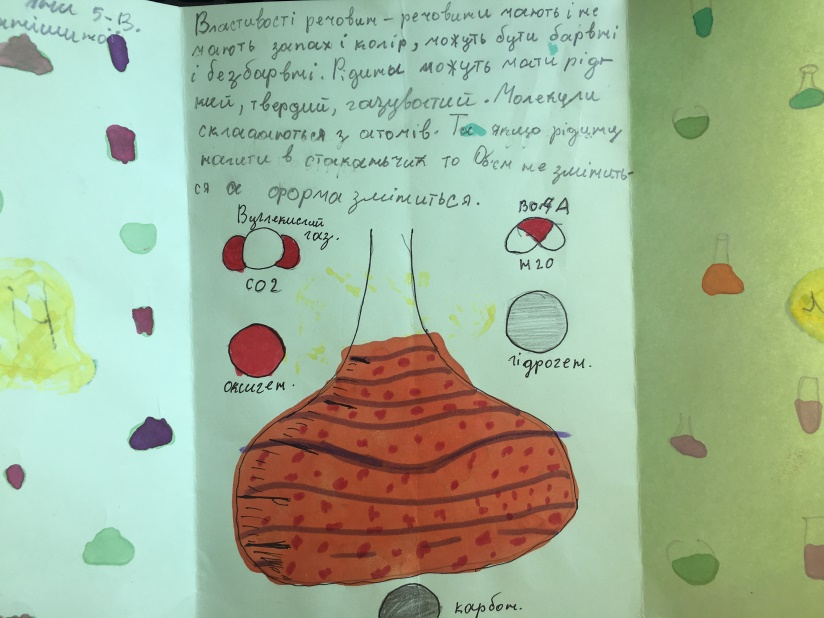 5-В.
Властивості речовин - речовини мають і не
мають запах і колір, можуть бути барвні
і безбарвні. Рідини можуть мати рідк-
ний, твердий, газуватий. Молекули
складаються з атомів. Та якщо рідину
налити в стаканьчик то Об'єм не змінить-
ся а форма змінится.
Вуглекислий
газ.
CO2
ВОДА
H2O
оксиген.
гідроген.
карбон.